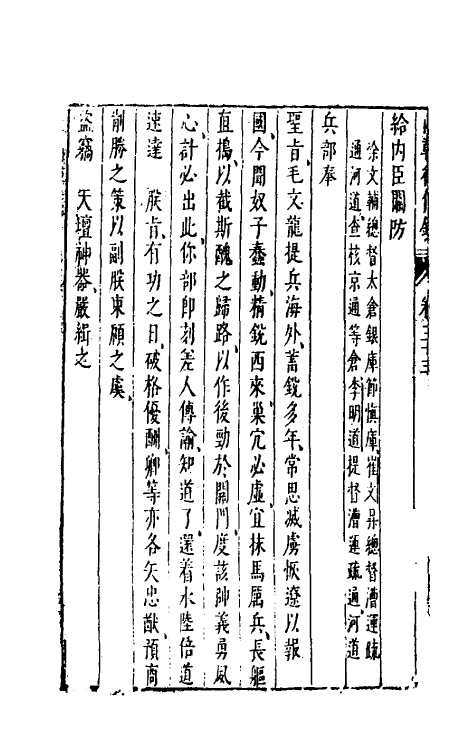 給內臣關防
徐文輔總督太倉銀庫節慎庫崔文昇總督漕運疏
通河道查核京通等倉李明道提督漕運疏通河道
兵部奉
聖旨毛文龍提兵海外蓄銳多年常思滅虜恢遼以報
國今聞奴子蠢動精銳西來巢穴必虛宜抹馬厲兵長驅
直搗以截斯醜之歸路以作後勁於關門度該帥義勇夙
心計必出此你部即刻差人傳諭知道了還着水陸倍道
速達 朕旨有功之日破格優酬卿等亦各矢忠猷預商
制勝之策以副朕東顧之虞
盜竊 天壇神器嚴緝之